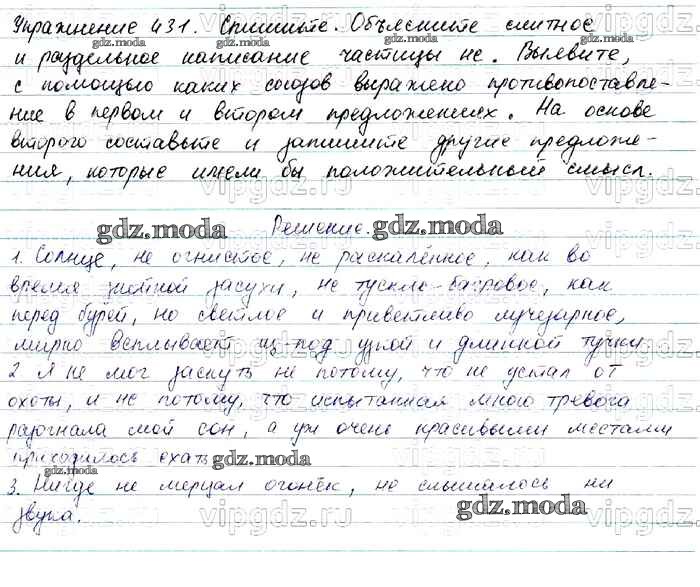 Упражнение 431. Спишите. Объясните слитное
и раздельное написание частицы не. Выявите,
с помощью каких союзов выражено противопоставле-
ние в первом и втором предложениях. На основе
второго составьте и запишите другие предложе-
ния, которые имели бы положительный смысл.
gdz.moda Решение. gdz.moda
1. Солнце, не огнистое, не раскалённое, как во
время знойной засухи, не тускло-багровое, как
перед бурей, но светлое и приветливо лучезарное,
мирно всплывает из-под узкой и длинной тучки.
2 Я не мог заснуть не потому, что не устал от
охоты, и не потому, что испытанная мною тревога
разогнала мой сон, а уж очень красивыми местами
приходилось ехать
3. Нигде не мерцал огонёк, не слышалось ни
звука.